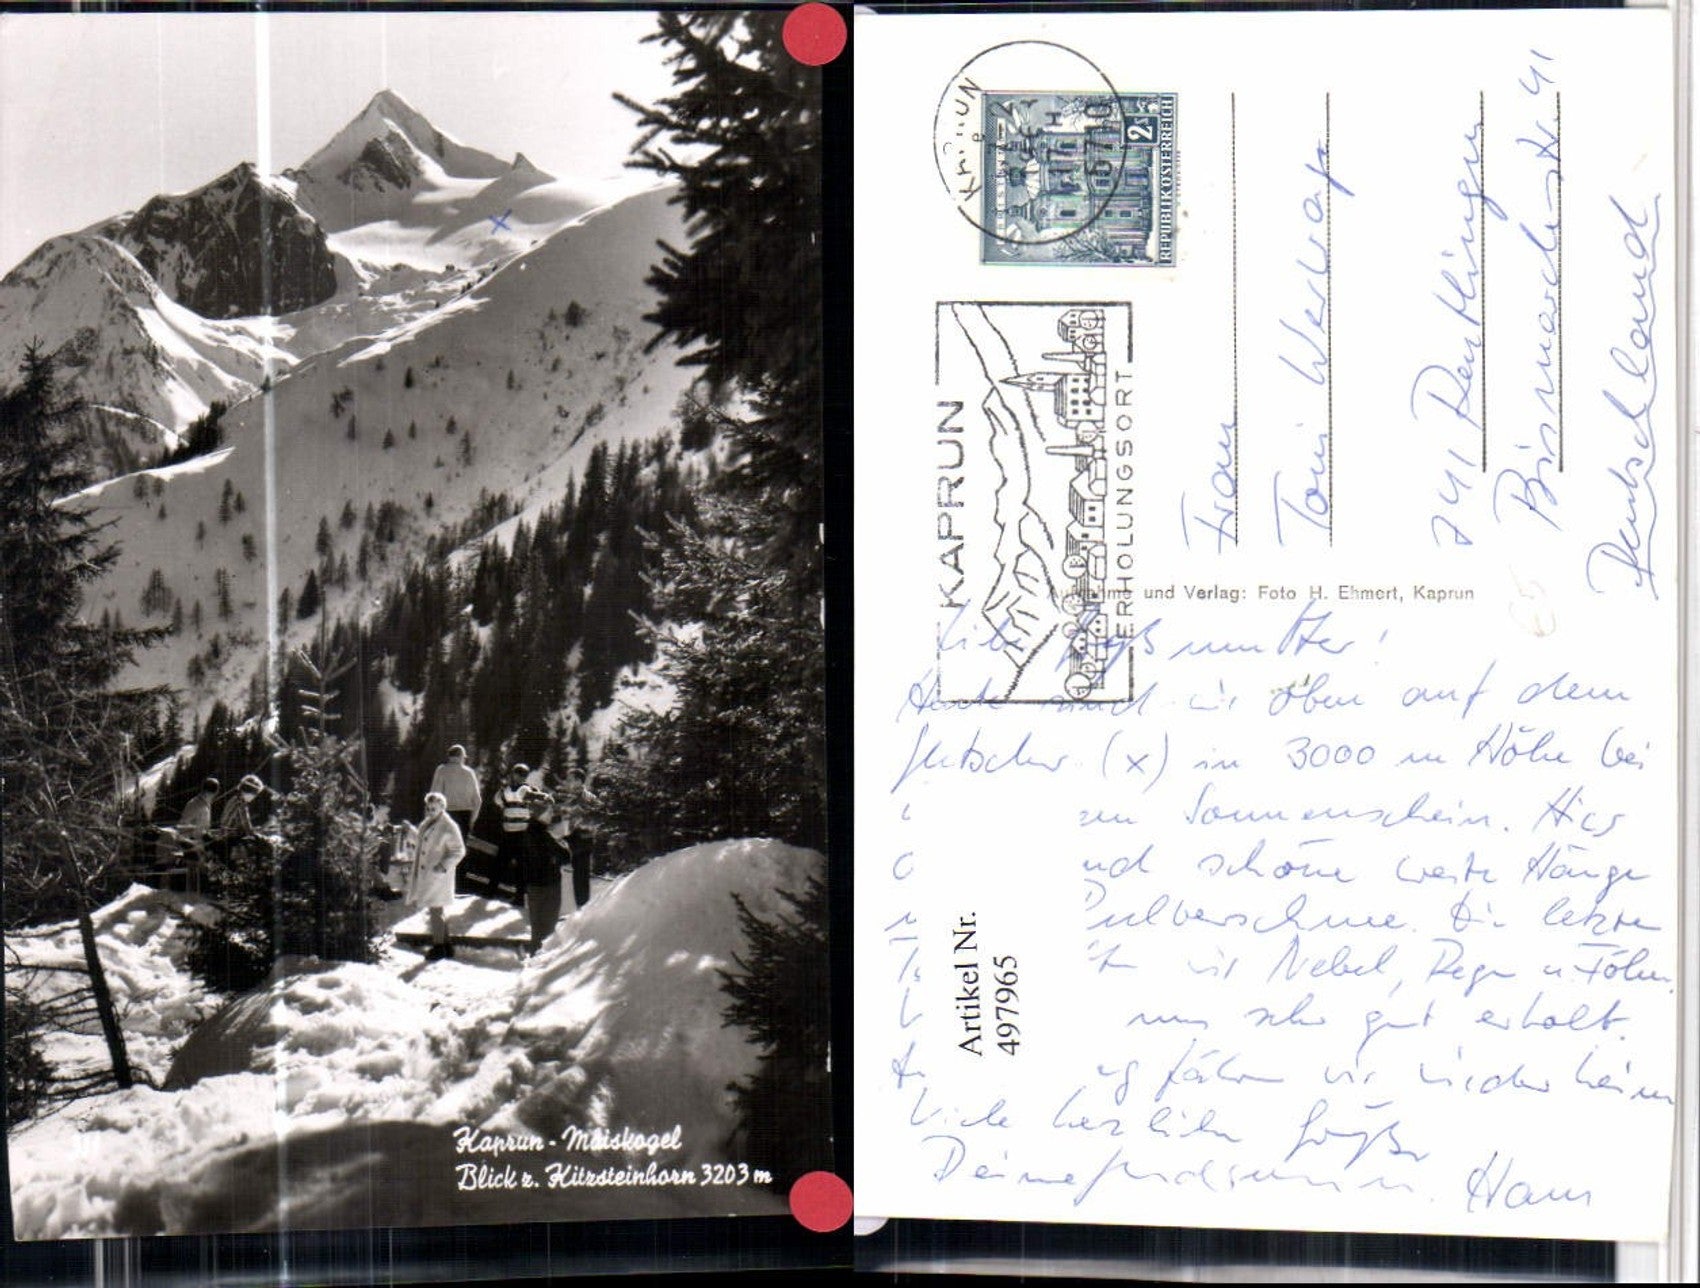 Kaprun - Maiskogel
Blick z. Kitzsteinhorn 3203 m
KAPRUN
REPUBLIK ÖSTERREICH
2s
KAPRUN
ERHOLUNGSORT
Frau
Toni
741 Reutlingen
Bismarckstr. 41
Deutschland
Aufnahme und Verlag: Foto H. Ehmert, Kaprun
Liebe Großmutter!
Heute sind wir oben auf dem
Gletscher (x) in 3000 m Höhe bei
Sonnenschein. Hier
und schöne weite Hänge
Pulverschnee. Die letzten
wir Nebel, Regen u. Föhn
uns sehr gut erholt.
fahren wir wieder heim
Viele herzliche Grüße
Deine Hans
Artikel Nr.
497965